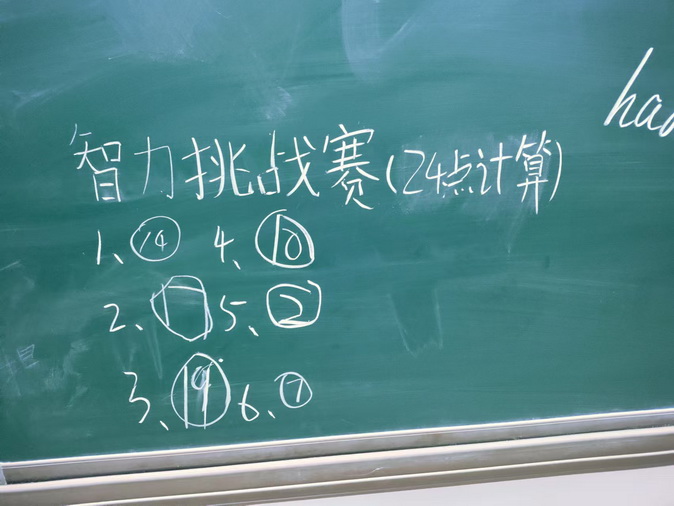 智力挑战赛(24点计算)
1、⑭ 4、⑩
2、① 5、②
3、⑲ 6、⑦